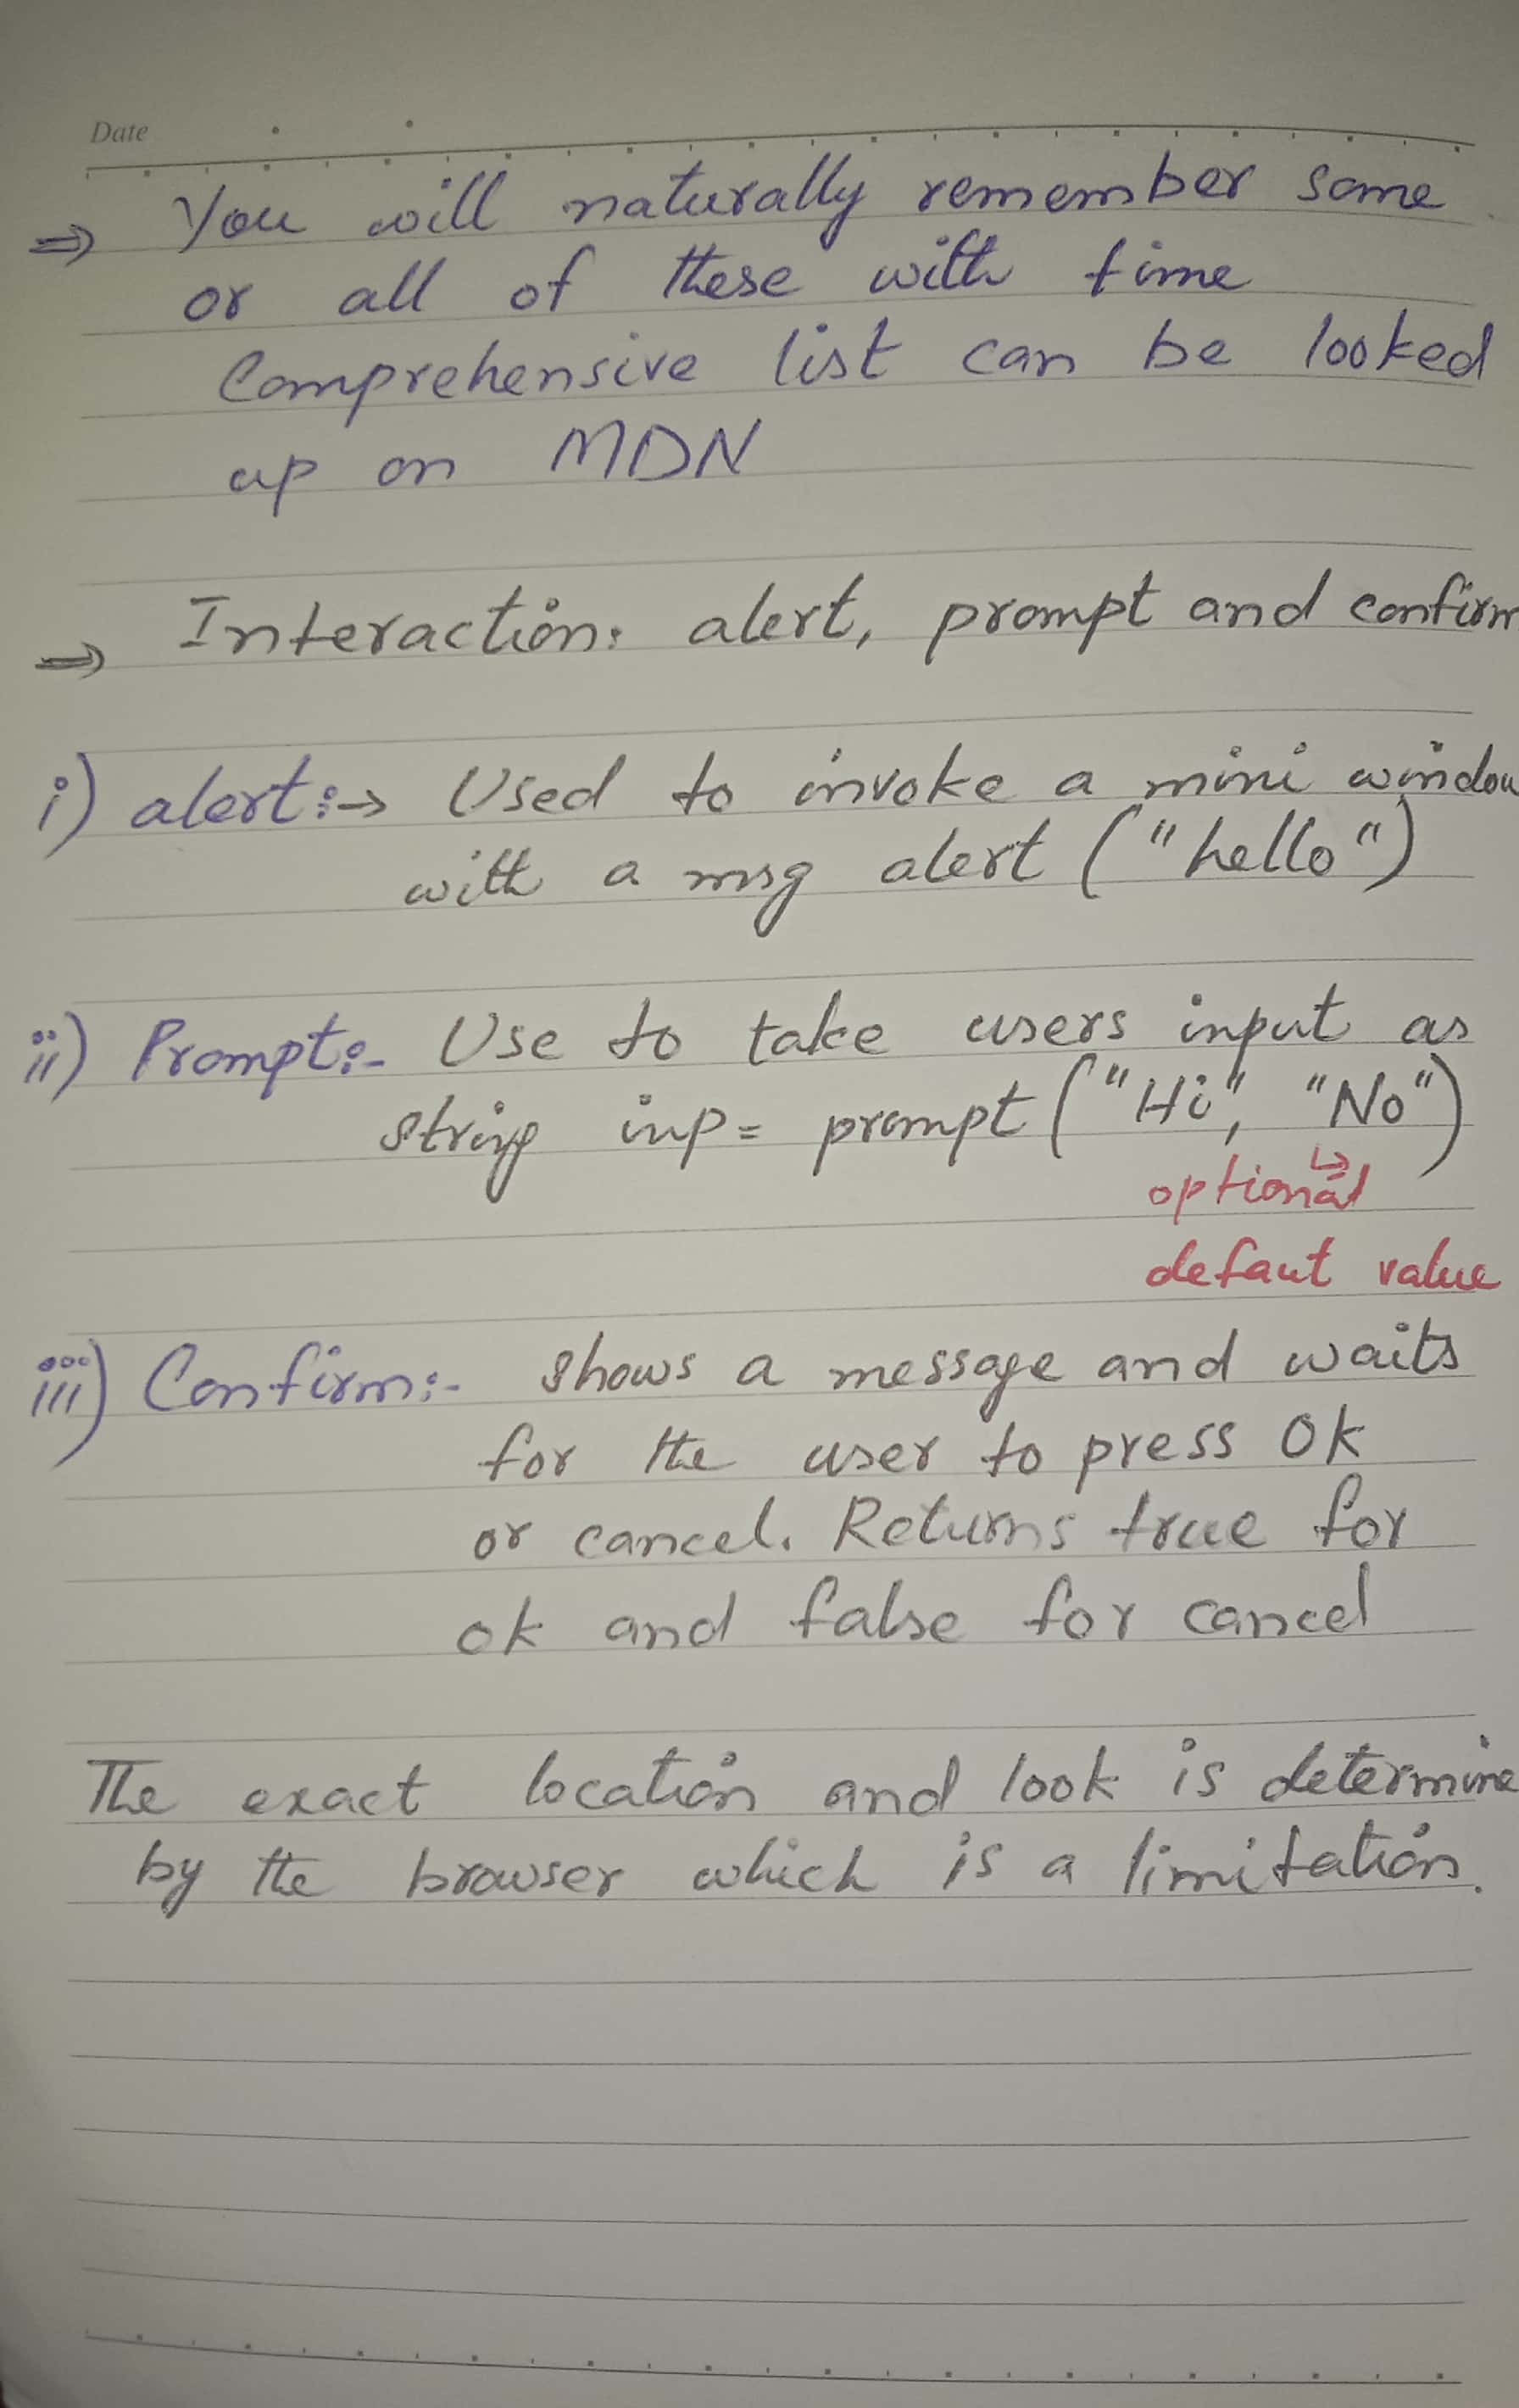 Date
⇒ You will naturally remember some
or all of these with time
Comprehensive list can be looked
up on MDN
⇒ Interaction: alert, prompt and confirm
i) alert:→ Used to invoke a mini window
with a msg alert ("hello")
ii) Prompt:- Use to take users input as
string inp = prompt ("Hi", "No")
↳
optional
defaut value
iii) Confirm:- shows a message and waits
for the user to press OK
or cancel. Returns true for
ok and false for cancel
The exact location and look is determine
by the browser which is a limitation.